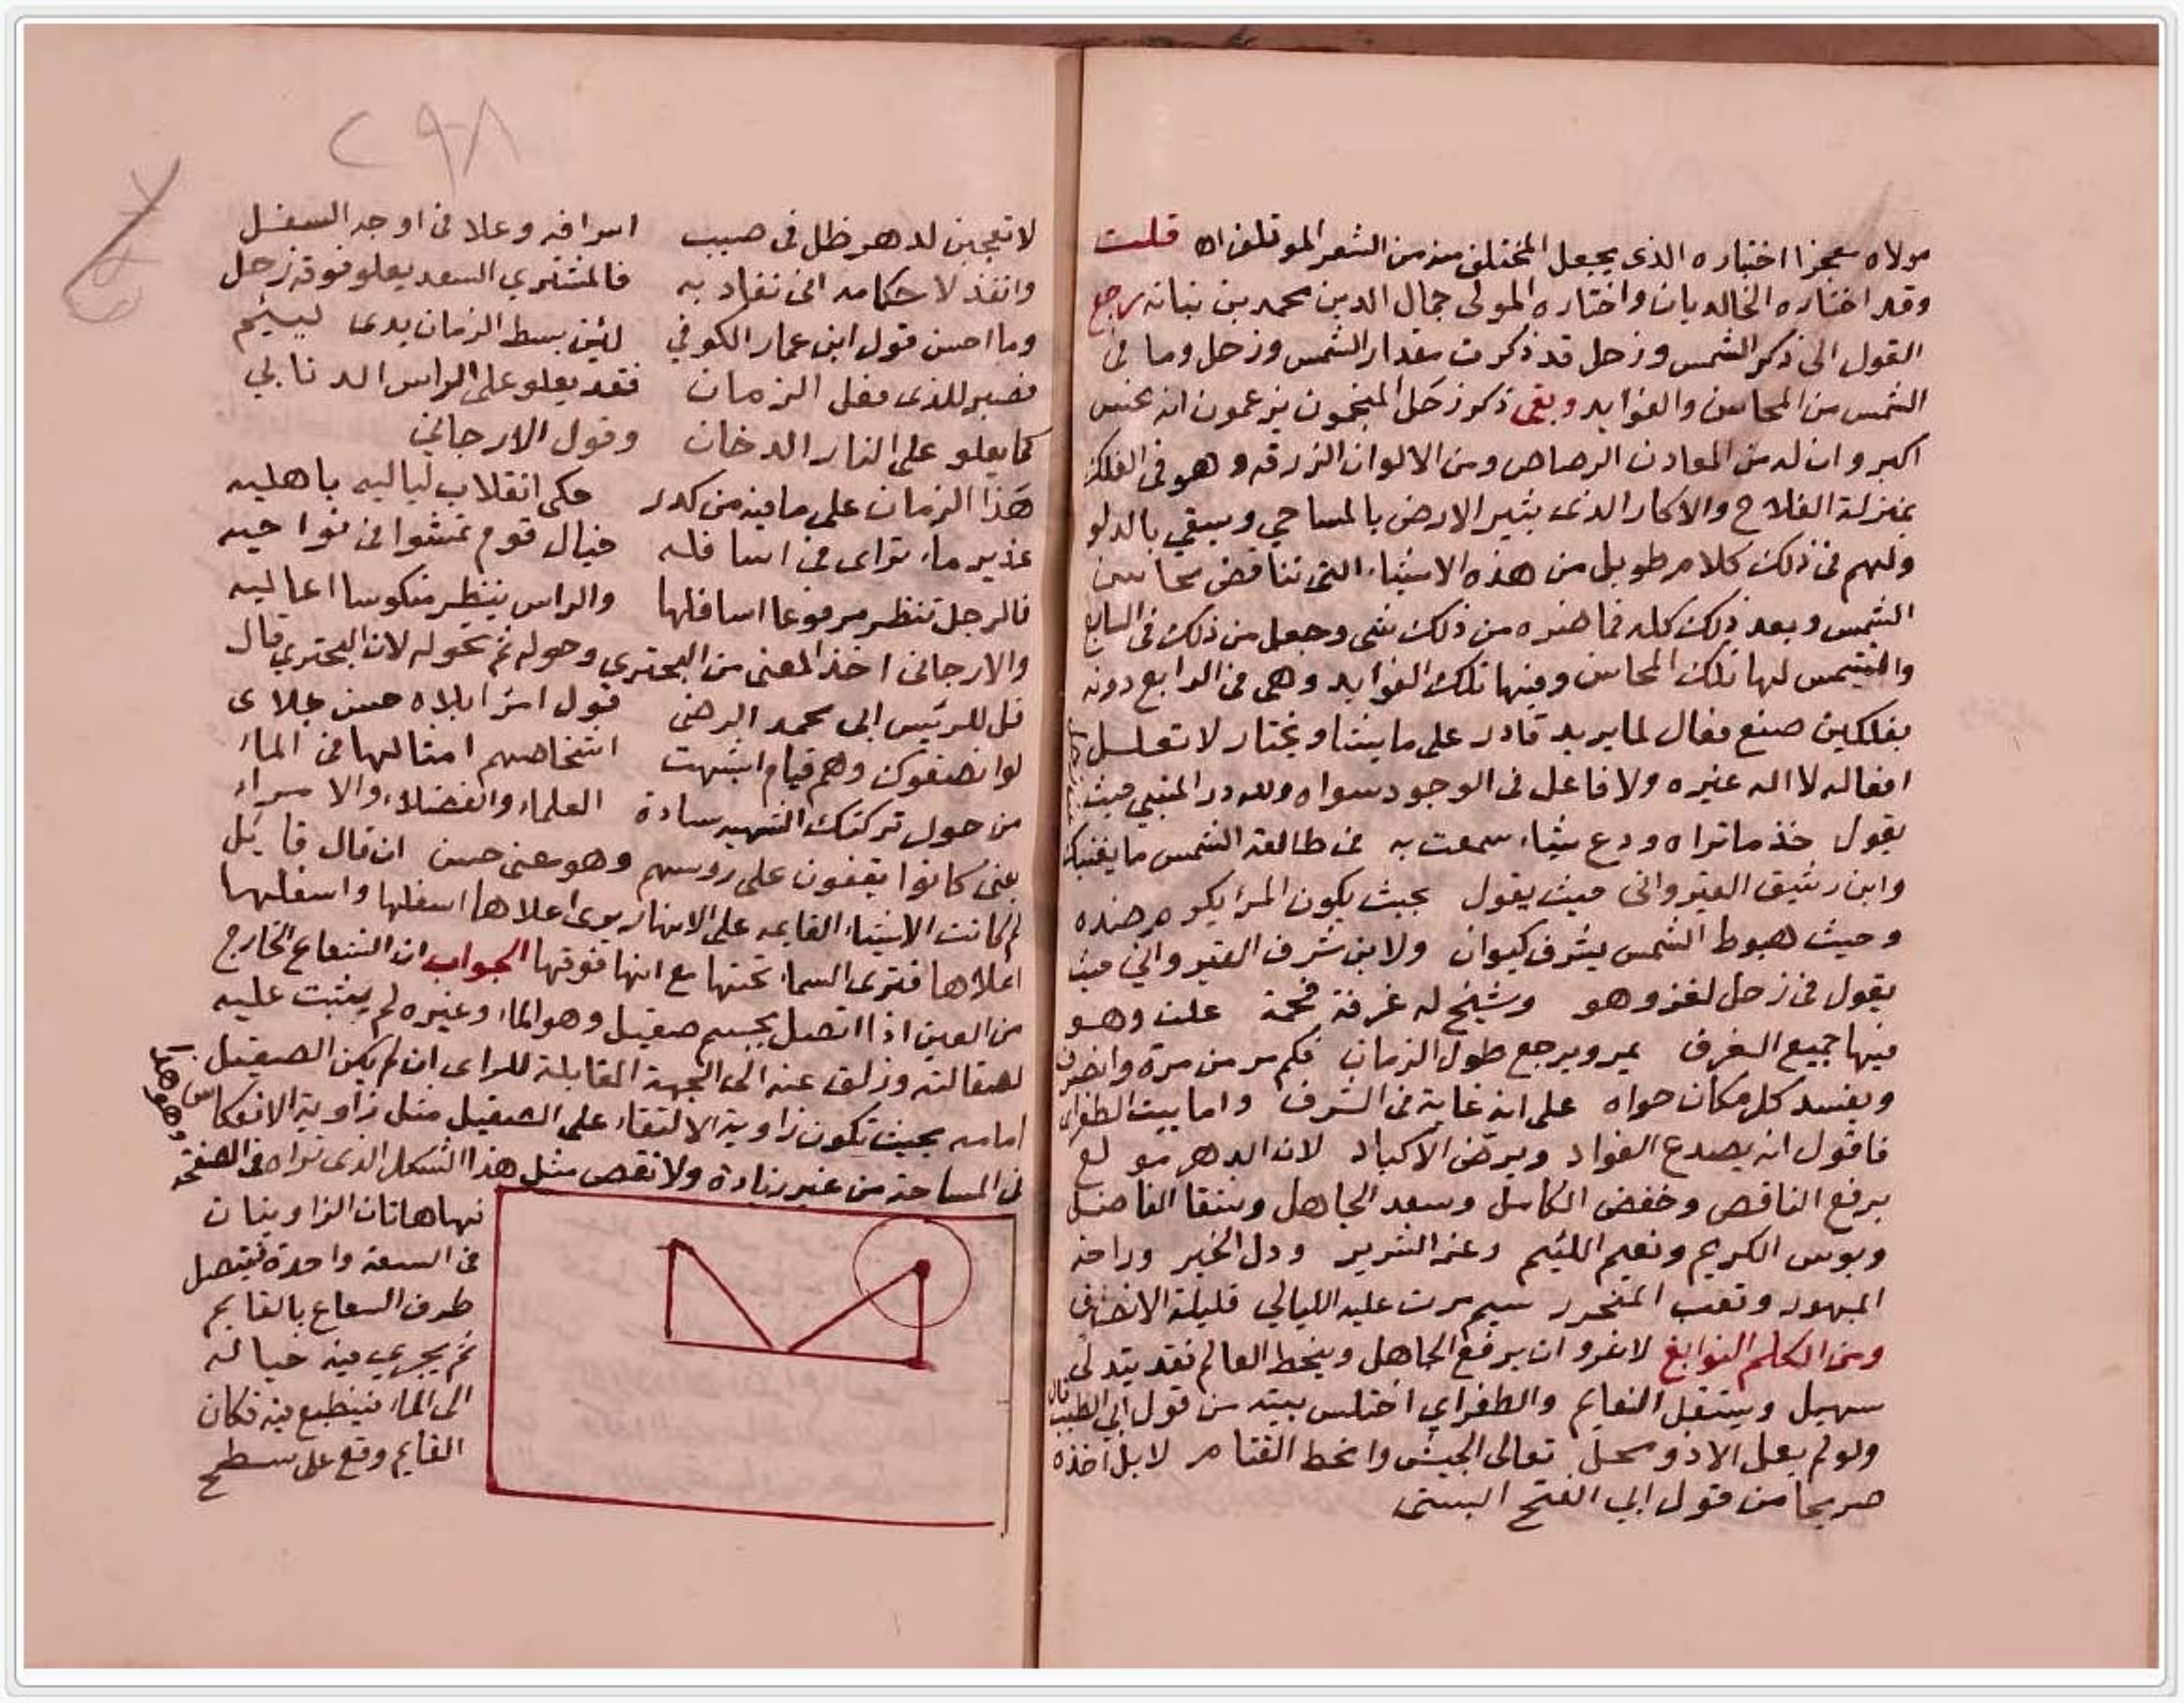 مولاه معجزا اختياره الذى يجعل المختلف منه من الشعر الموتلف اه قلت
وقد اختاره الخالديان واختاره المولى جمال الدين محمد بن نباته رجع
القول الى ذكر الشمس وزحل قد ذكرت مقدار الشمس وزحل وما فى
الشمس من المحاسن والفوايد وبقى ذكر زحل المنجمون يزعمون انه نحس
اكبر وان له من المعادن الرصاص ومن الالوان الزرقه وهو فى الفلك
بمنزلة الفلاح والاكار الذى يثير الارض بالمساحي ويسقي بالدلو
ولهم فى ذلك كلام طويل من هذه الاشياء التى تناقض محاسن
الشمس وبعد ذلك كله فما ضره من ذلك شى وجعل من ذلك فى السابع
والشمس لها تلك المحاسن وفيها تلك الفوايد وهى فى الرابع دونه
بفلكين صنع فعال لما يريد قادر على ما يشا ويختار لا تعلل
افعاله لا اله غيره ولا فاعل فى الوجود سواه ولله در المتنبي حيث
يقول خذ ما تراه ودع شياء سمعت به فى طالعة الشمس ما يغنيك
وابن رشيق القيروانى حيث يقول بحيث يكون المرا يكو هر ضده
وحيث هبوط الشمس يشرف كيوان ولابن شرف القيرواني حيث
يقول فى زحل لغز وهو وشيخ له غرفة فخمة علت وهو
فيها جميع الغرف يمر ويرجع طول الزمان فكم مر من مرة وانصرف
ويفسد كل مكان حواه على انه غاية فى الشرف واما بيت الطغراى
فاقول انه يصدع الفواد ويرض الاكباد لان الدهر مولع
برفع الناقص وخفض الكامل وسعد الجاهل وشقا الفاضل
وبوس الكريم ونعيم اللئيم وعز الشرير وذل الخير وراحة
المبهور وتعب المتحرر شيم مرت عليه الليالي قليلة الانصاف
ومن الكلم النوابغ لا غرو ان يرفع الجاهل وينحط العالم فقد يتدلى
سهيل ويستقل النعايم والطغراي اختلس بيته من قول ابي الطيب قال
ولو لم يعل الا ذو محل تعالى الجيش وانحط القتام لا بل اخذه
صريحا من قول ابي الفتح البستى
٢٩٨
لا تعجبن لدهر ظل فى صبب اشرافه وعلا فى اوجه السفل
وانقذ لاحكامه انى تقاد به فالمشتري السعد يعلو فوقه زحل
وما احسن قول ابن عمار الكوفي لئن بسط الزمان يدى لييئم
فصبر للذى فعل الزمان فقد يعلو على الراس الدنابي
كما يعلو على النار الدخان وقول الارجاني
هذا الزمان على ما فيه من كدر حكى انقلاب لياليه باهليه
غدير ماء تراى فى اسافله خيال قوم تمشوا فى نواحيه
فالرجل تنظر مرفوعا اسافلها والراس ينظر منكوسا اعاليه
والارجانى اخذ المعنى من البحتري وحوله ثم نحوله لان البحتري قال
قل للرئيس ابى محمد الرضى قول امرا ابلاه حسن بلاى
لو انصفوك وهم قيام اشبهت اشخاصهم امثالها فى الماء
من حول تركتك الشهير سادة العلماء والفضلاء والامراء
يعنى كانوا يقفون على روسهم وهو معنى حسن ان قال قايل
لم كانت الاشياء القايمه على الانهار يرى اعلاها اسفلها واسفلها
اعلاها فترى السماء تحتها مع انها فوقها الجواب ان الشعاع الخارج
من العين اذا اتصل بجسم صقيل وهو الماء وغيره لم يثبت عليه
لصقالته وزلق عنه الى الجهة المقابلة للراى ان لم يكن الصقيل
امامه بحيث تكون زاوية الالتقاء على الصقيل مثل زاوية الانعكاس
فى المساحة من غير زيادة ولا نقص مثل هذا الشكل الذى تراه فى الصفحة
وهو هذا
فهاهاتان الزاويتان
فى السعة واحدة فيتصل
طرف الشعاع بالقايم
ثم يجري فيه خياله
الى الماء فينطبع فيه فكان
القايم وقع على سطح